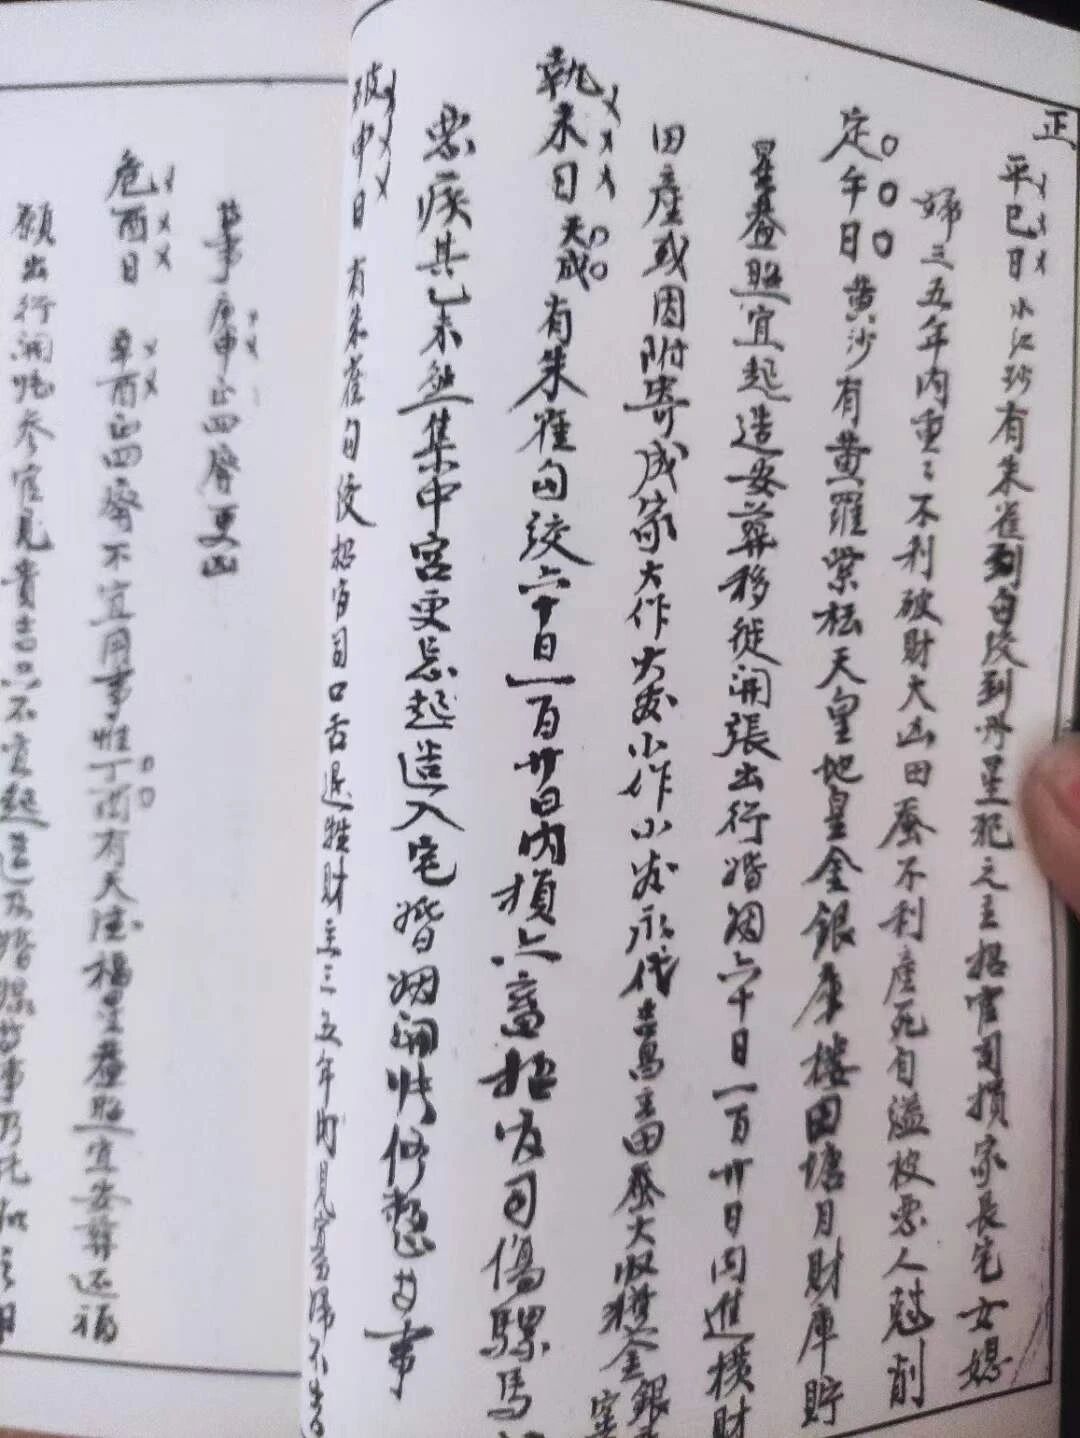 正
平巳日小江沙有朱雀到勾绞到丹星犯之主招官司損家長宅女媳
婦三五年内重〻不利破財大凶田蚕不利產死自溢被惡人尅削
定午日黄沙有黄羅紫檀天皇地皇金銀庫樓田塘月財庫貯
星蓋照宜起造安葬移徙開張出行婚姻六十日一百廿日内進横財
田產或因附寄成家大作大发小作小发永代吉昌主田蚕大收獲金銀
執未日天成有朱雀勾绞六十日一百廿日内損六畜招官司傷騾馬
惡疾其乙未煞集中宫更忌起造入宅婚姻開張修整廿事
破申日有朱雀勾绞招官司口舌退牲財主三五年内見寡婦不吉
廿事庚申正四廢更凶
危酉日辛酉正四廢不宜用事惟丁酉有天德福星蓋照宜安葬还福
願出行開张参官見貴吉只不宜起造及婚姻廿事